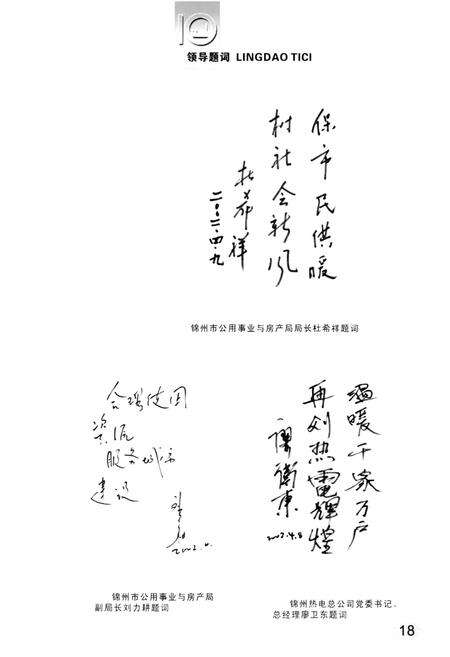 10
领导题词 LINGDAO TICI
保市民供暖
树社会新风
杜希祥
二〇〇二·四·九
锦州市公用事业与房产局局长杜希祥题词
合理使用
资源
服务城市
建设
刘力耕
2002.4.
锦州市公用事业与房产局
副局长刘力耕题词
温暖千家万户
再创热电辉煌
廖卫东
2002.4.8
锦州热电总公司党委书记、
总经理廖卫东题词
18